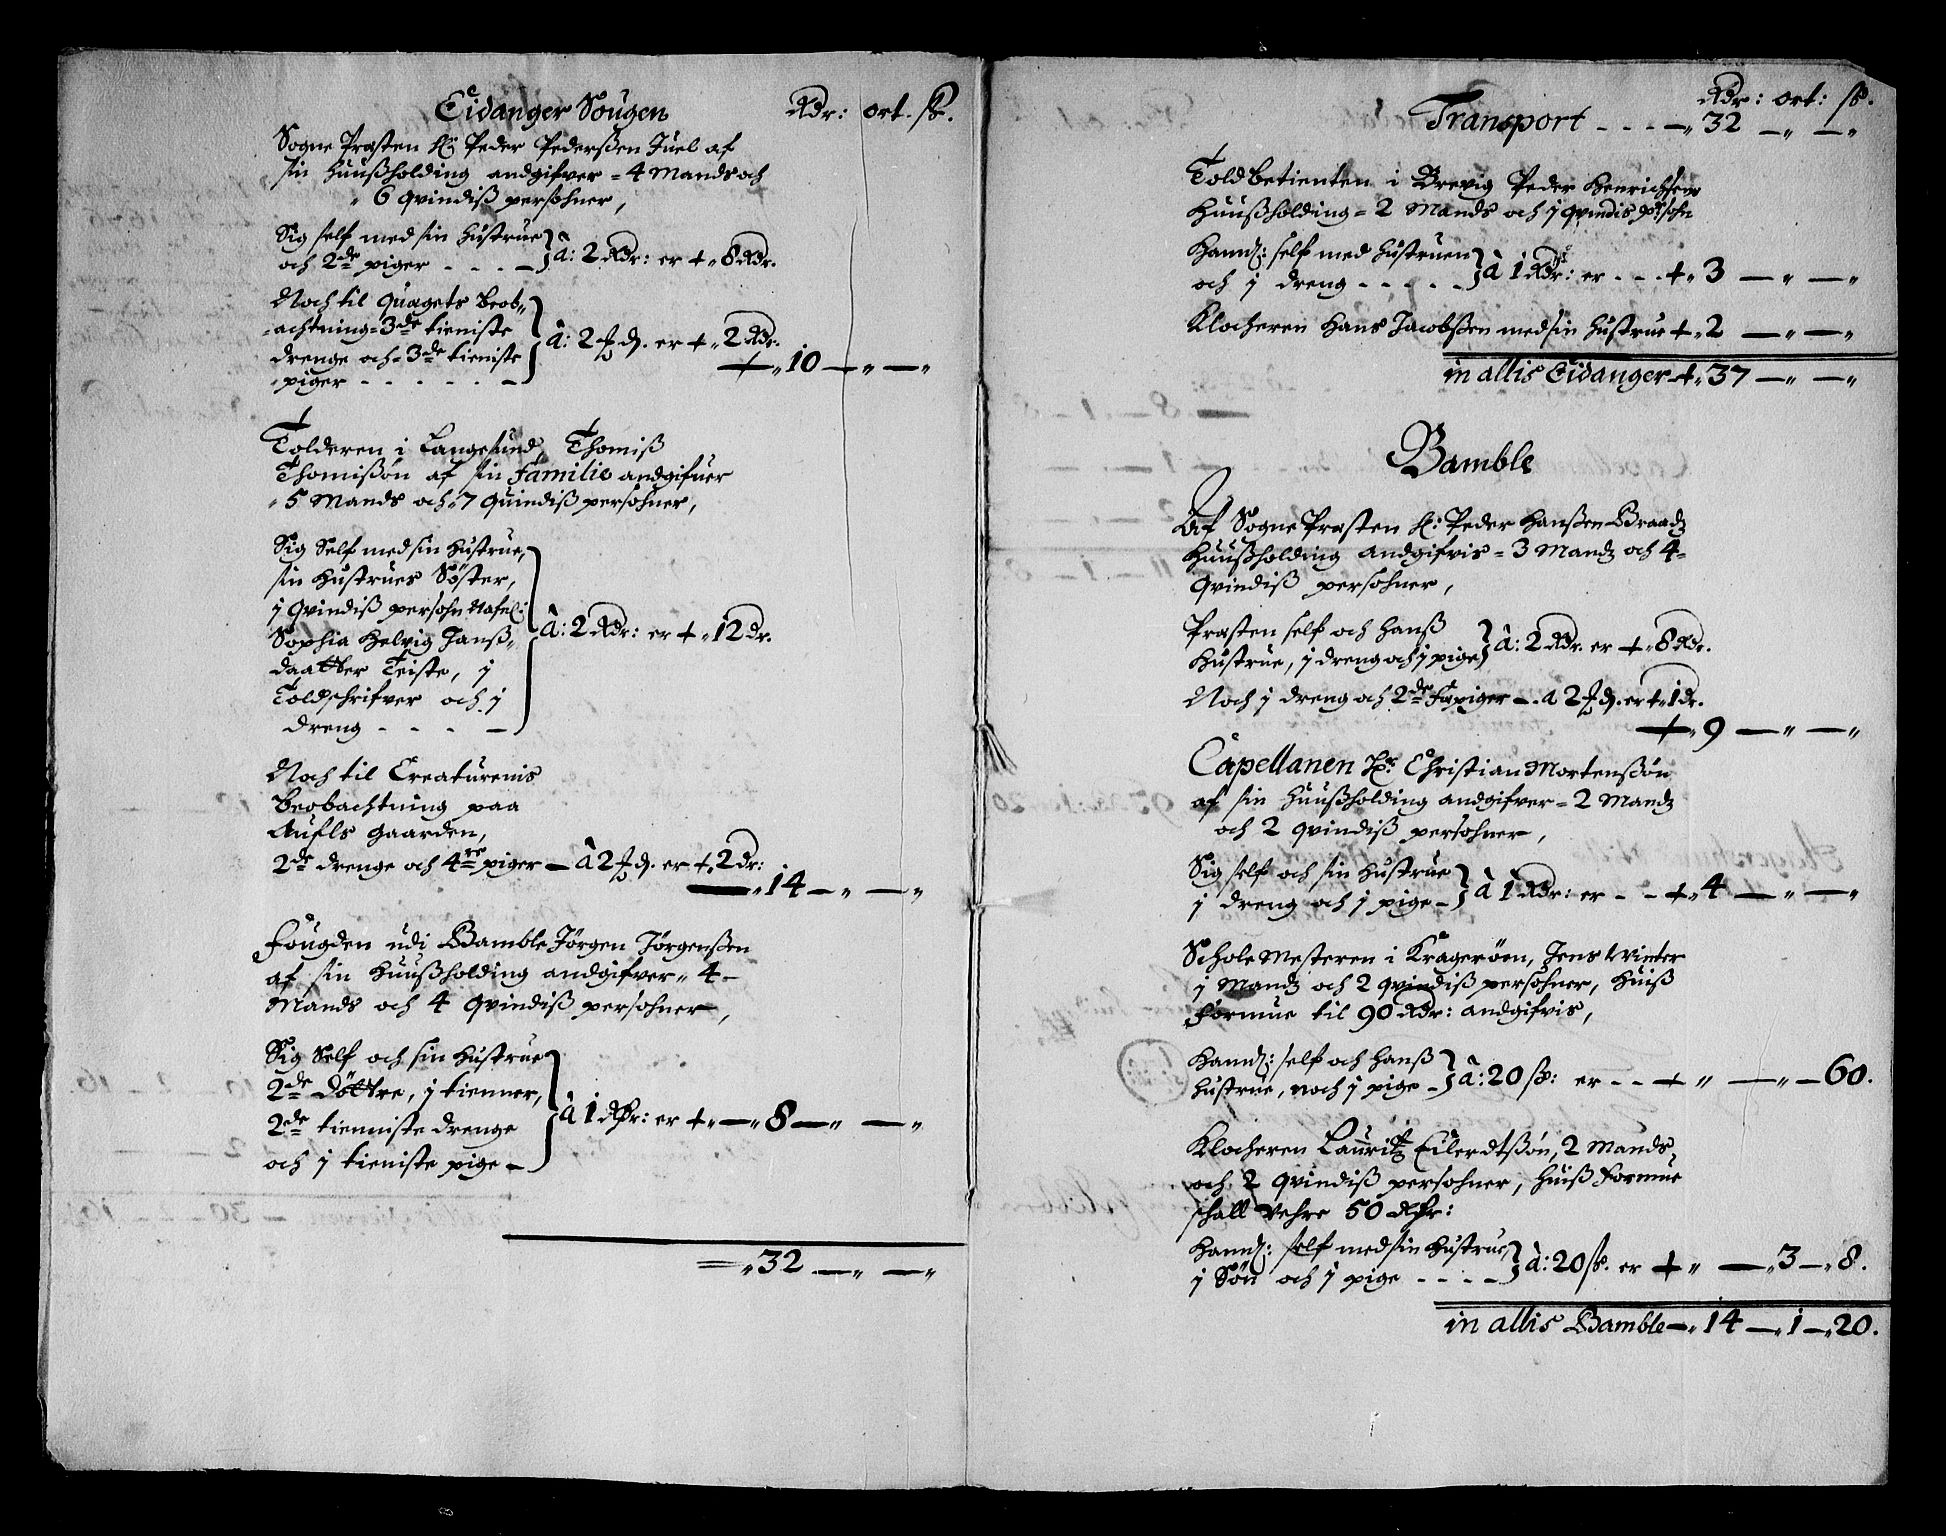 Eidanger Sougen Rdr: ort. ſß.
Sogne Præsten H: Peder Pederßen Juel af
sin Huußholding andgifver = 4 Mands och
" 6 qvindiß persohner,
Sig self med sin Hustrue
och 2de piger - - - - } à: 2 Rdr: er + " 8 Rdr.
Noch til qvægets beob,,
=achtning = 3de tieniste
drenge och = 3de tieniste } à: 2 ꝶ. er + " 2 Rdr.
piger - - - - - - + " 10 — " — "
Tolderen i Langesund, Thomiß
Thomißøn af sin Familie andgifuer
" 5 Mands och " 7 Quindiß persohner,
Sig Self med sin Hustrue,
sin Hustrues Søster,
j qvindiß persohn Nafnl:
Sophia Helvig Janß-
daatter Teiste, j } à: 2 Rdr: er + " 12 Dr.
Toldschrifver och j
dreng - - - -
Noch til Creaturenis
beobachtning paa
gaarden,
2de drenge och 4re piger — à 2 ꝶ. er + " 2 Dr:
— " 14 — " — "
Fougden udi Bamble Jørgen Jørgenßen
af sin Huußholding andgifver " 4 —
Mands och 4 qvindiß persohner,
Sig Self och sin Hustrue
2de Døttre, j tienner,
2de tienniste drenge } à 1 Rdr: er + " — " 8 — " — "
och j tieniste pige —
= " 32 — " — "
Rdr: ort: ſß.
Transport - - - — " 32 — " — "
Toldbetienten i Brevig Peder Henrichsens
Huußholding = 2 Mands och j qvindis persohn
Hannß: self med Hustruen
och j dreng - - - - - } à 1 Rdr: er - - - + " 3 — " — "
Klocheren Hans Jacobßen med sin Hustrue + " 2 — " — "
in allis Eidanger + " 37 — " — "
Bamble
Af Sogne Præsten H: Peder Hanßen Braadz
Huußholding andgifvis = 3 Mandz och 4 =
qvindiß persohner,
Præsten self och hanß
Hustrue, j dreng och j pige } à: 2 Rdr. er + " 8 Rdr.
Noch j dreng och 2de piger — à 2 ꝶ. er + " 1 Dr.
+ " 9 — " — "
Capellanen Hr: Christian Mortenßøn
af sin Huußholding andgifver = 2 Mandz
och 2 qvindiß persohner,
Sig self och sin Hustrue
j dreng och j pige — } à 1 Rdr: er - - + " 4 — " — "
Schole Mesteren i Kragerøen, Jens Winter
j Mandz och 2 qvindiß persohner, Huiß
Formue til 90 Rdr: andgifvis,
Hannß: self och hanß
Hustrue, noch j pige — } à: 20 ſß: er - - + " — " — 60.
Klocheren Lauritz Eilerdtßøn, 2 Mands
och 2 qvindiß persohner, Huiß Formue
schall vehre 50 Rdr:
Hannß: self med sin Hustrue,
j Søn och j pige - - - - } à: 20 ſß. er + " — " 3 — " 8.
in allis Bamble — " 14 — " 1 — " 20.